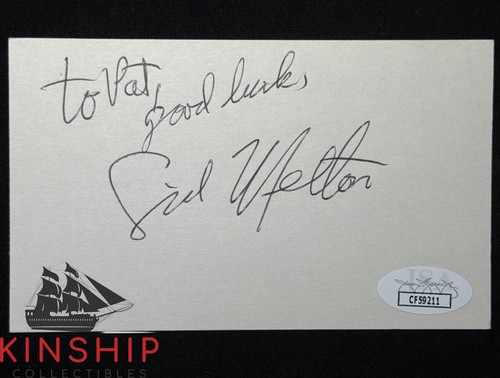 to Pat,
good luck,
Sid Melton
JSA
CF59211
KINSHIP
COLLECTIBLES